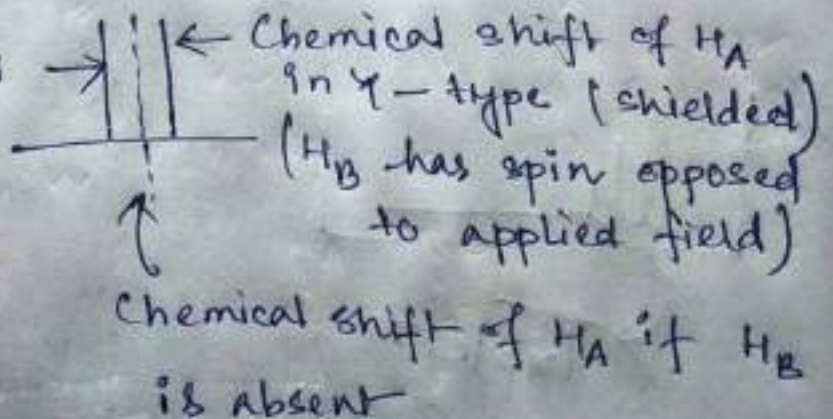 ← Chemical shift of HA
in Y-type (shielded)
(HB has spin opposed
to applied field)
Chemical shift of HA if HB
is absent